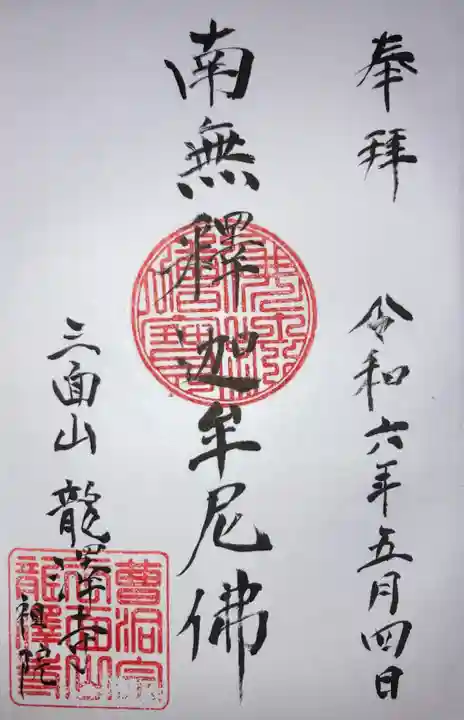 奉拝
令和六年五月四日
南無釋迦牟尼佛
三面山 龍澤寺
祖院
曹洞宗
三面山
龍澤寺